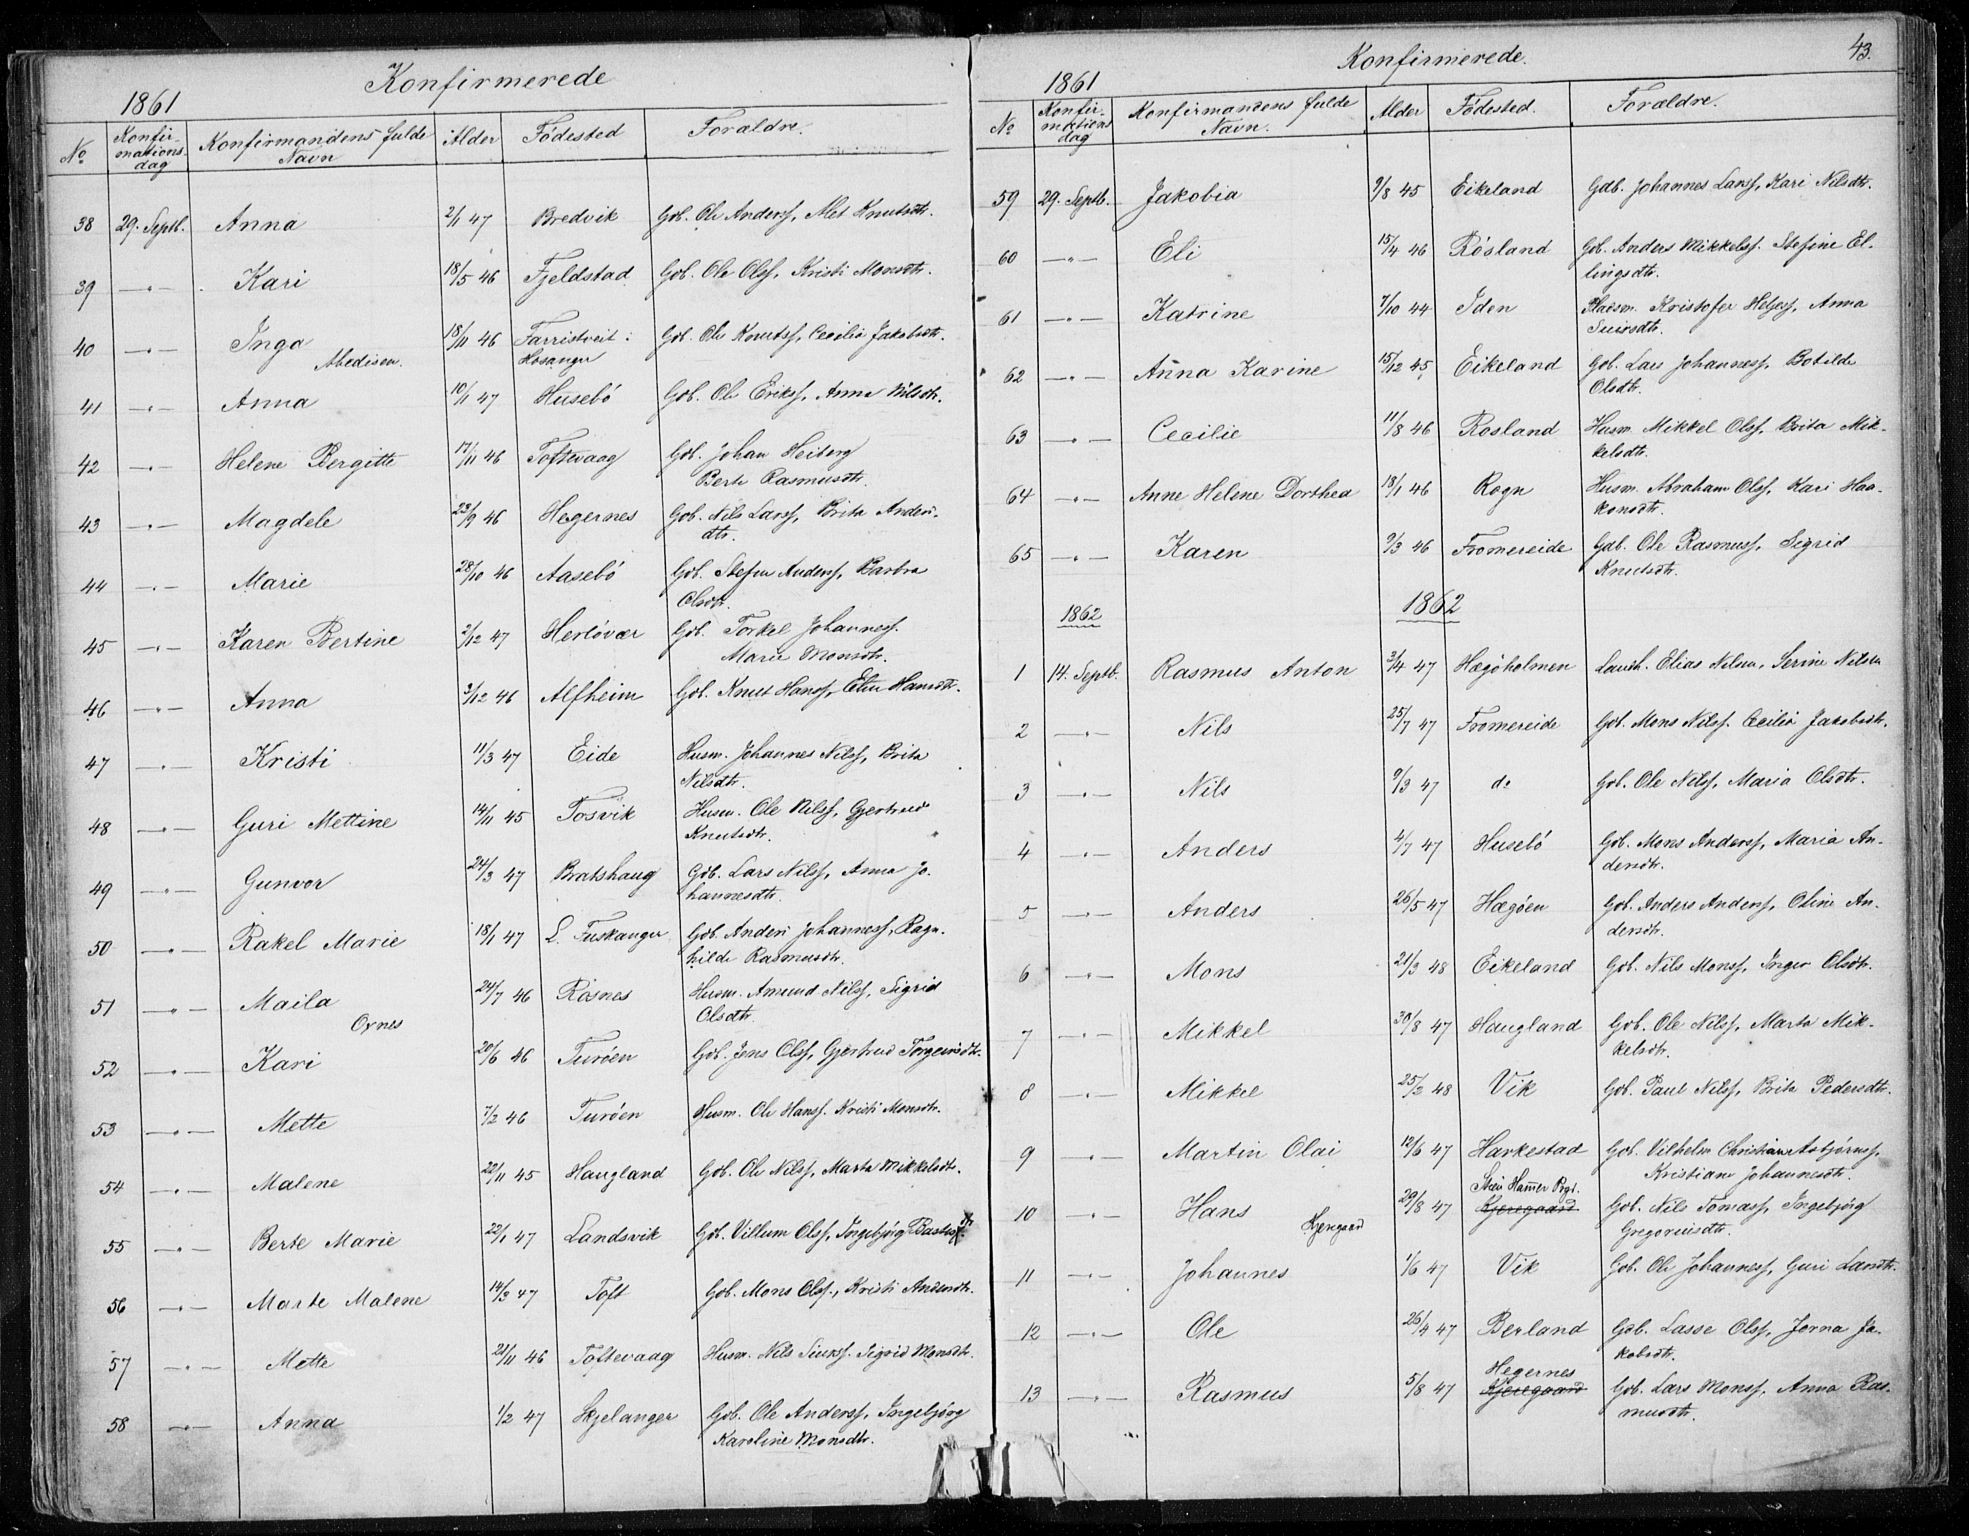 Konfirmerede
1861
No Konfirmationsdag Konfirmandens fulde Navn Alder Fødested Forældre.
38 29. Septb. Anna 2/1 47 Bredvik Gdb. Ole Anderss, Alet Knutsdtr.
39 —"— Kari 18/5 46 Fjeldstad Gdb. Ole Olss, Kristi Monsdtr.
40 —"— Inga 18/11 46 Farristveit i Gdb. Ole Knutss, Cecilia Jakobsdtr.
Abedissen. Hosanger
41 —"— Anna 10/1 47 Husebö Gdb. Ole Erikss, Anna Nilsdtr.
42 —"— Helene Bergitte 17/11 46 Toftevaag Gdb. Johan Heiberg
Berte Rasmusdtr.
43 —"— Magdele 23/9 46 Hegernes Gdb. Nils Larss, Brita Anders-
dtr.
44 —"— Marie 28/10 46 Aasebö Gdb. Stefen Anderss, Barbra
Olsdtr.
45 —"— Karen Bertine 2/12 47 Herlövær Gdb. Torkel Johanness.
Marie Monsdtr.
46 —"— Anna 3/12 46 Alfheim Gdb. Knut Hanss, Elen Hansdtr.
47 —"— Kristi 11/3 47 Eide Husm. Johannes Nilss, Brita
Nilsdtr.
48 —"— Guri Mettine 14/11 45 Tosvik Husm. Ole Nilss, Gjertrud
Knutsdtr.
49 —"— Gunvor 24/3 47 Bratshaug Gdb. Lars Nilss, Anna Jo-
hannesdtr.
50 —"— Rakel Marie 18/1 47 L. Fuskanger Gdb. Anders Johanness, Ragn-
hilde Rasmusdtr.
51 —"— Maila 24/7 46 Rosnes Husm. Amund Nilss, Sigrid
Oxnes Olsdtr.
52 —"— Kari 20/6 46 Turöen Gdb. Jens Olss, Gjertrud Torgeirsdtr.
53 —"— Mette 7/2 46 Turöen Husm. Ole Hanss. Kristi Monsdtr.
54 —"— Malene 22/11 45 Haugland Gdb. Ole Nilss, Marta Mikkelsdtr.
55 —"— Berte Marie 22/1 47 Landsvik Gdb. Villum Olss, Ingebjörg
56 —"— Marte Malene 14/3 47 Toft Gdb. Mons Olss., Kristi Andersdtr.
57 —"— Mette 21/11 46 Toftevaag Husm. Nils Siurss. Sigrid Monsdtr.
58 —"— Anna 1/2 47 Skjelanger Gdb. Ole Anderss, Ingebjörg
Karoline Monsdtr.
43.
Konfirmerede.
1861
No Konfirmationsdag Konfirmandens fulde Navn. Alder Fødested. Forældre.
59 29. Septb. Jakobia 9/8 45 Eikeland Gdb. Johannes Larss, Kari Nilsdtr.
60 —"— Eli 15/4 46 Rösland Gdb. Anders Mikkelss. Stefine El-
lingsdtr.
61 —"— Katrine 7/10 44 Iden Pladsm. Kristofer Helgess, Anna
Siursdtr.
62 —"— Anna Karine 15/12 45 Eikeland Gdb. Lars Johanness, Botilde
Olsdtr.
63 —"— Cecilie 11/8 46 Rosland Husm. Mikkel Olss, Brita Mik-
kelsdtr.
64 —"— Anne Helene Dorthea 18/1 46 Rogn Husm. Abraham Olss, Kari Haa-
konsdtr.
65 —"— Karen 9/3 46 Fromereide Gdb. Ole Rasmuss, Sigrid
Knutsdtr.
1862 1862
1 14. Septb. Rasmus Anton 3/4 47 Hægöholmen Elias Nilsen, Serine Nilsen
2 —"— Nils 25/7 47 Fromereide Gdb. Mons Nilss. Cecilia Jakobsdtr.
3 —"— Nils 9/3 47 do Gdb. Ole Nilss, Maria Olsdtr.
4 —"— Anders 4/7 47 Husebö Gdb. Mons Anderss, Maria An-
dersdtr.
5 —"— Anders 26/5 47 Hægöen Gdb. Anders Anderss, Oline An-
dersdtr.
6 —"— Mons 21/3 48 Eikeland Gdb. Nils Monss, Inger Olsdtr.
7 —"— Mikkel 30/8 47 Haugland Gdb. Ole Nilss, Marta Mik-
kelsdtr.
8 —"— Mikkel 25/2 48 Vik Gdb. Paul Nilss, Brita Pedersdtr.
9 —"— Martin Olai 12/6 47 Harkestad Gdb. Vilhelm Christian Asbjörnss,
Kristiane Johannesdtr.
Hammer Prgj.
10 —"— Hans 29/8 47 Kjeregaard Gdb. Nils Tomass, Ingebjörg
Kjeregaard Gregoriusdtr.
11 —"— Johannes 1/6 47 Vik Gdb. Ole Johanness, Guri Larsdtr.
12 —"— Ole 26/4 47 Berland Gdb. Lasse Olss, Jorna Ja-
kobsdtr.
Hegernes
13 —"— Rasmus 5/8 47 Kjeregaard Gdb. Lars Monss, Anna Ras-
musdtr.